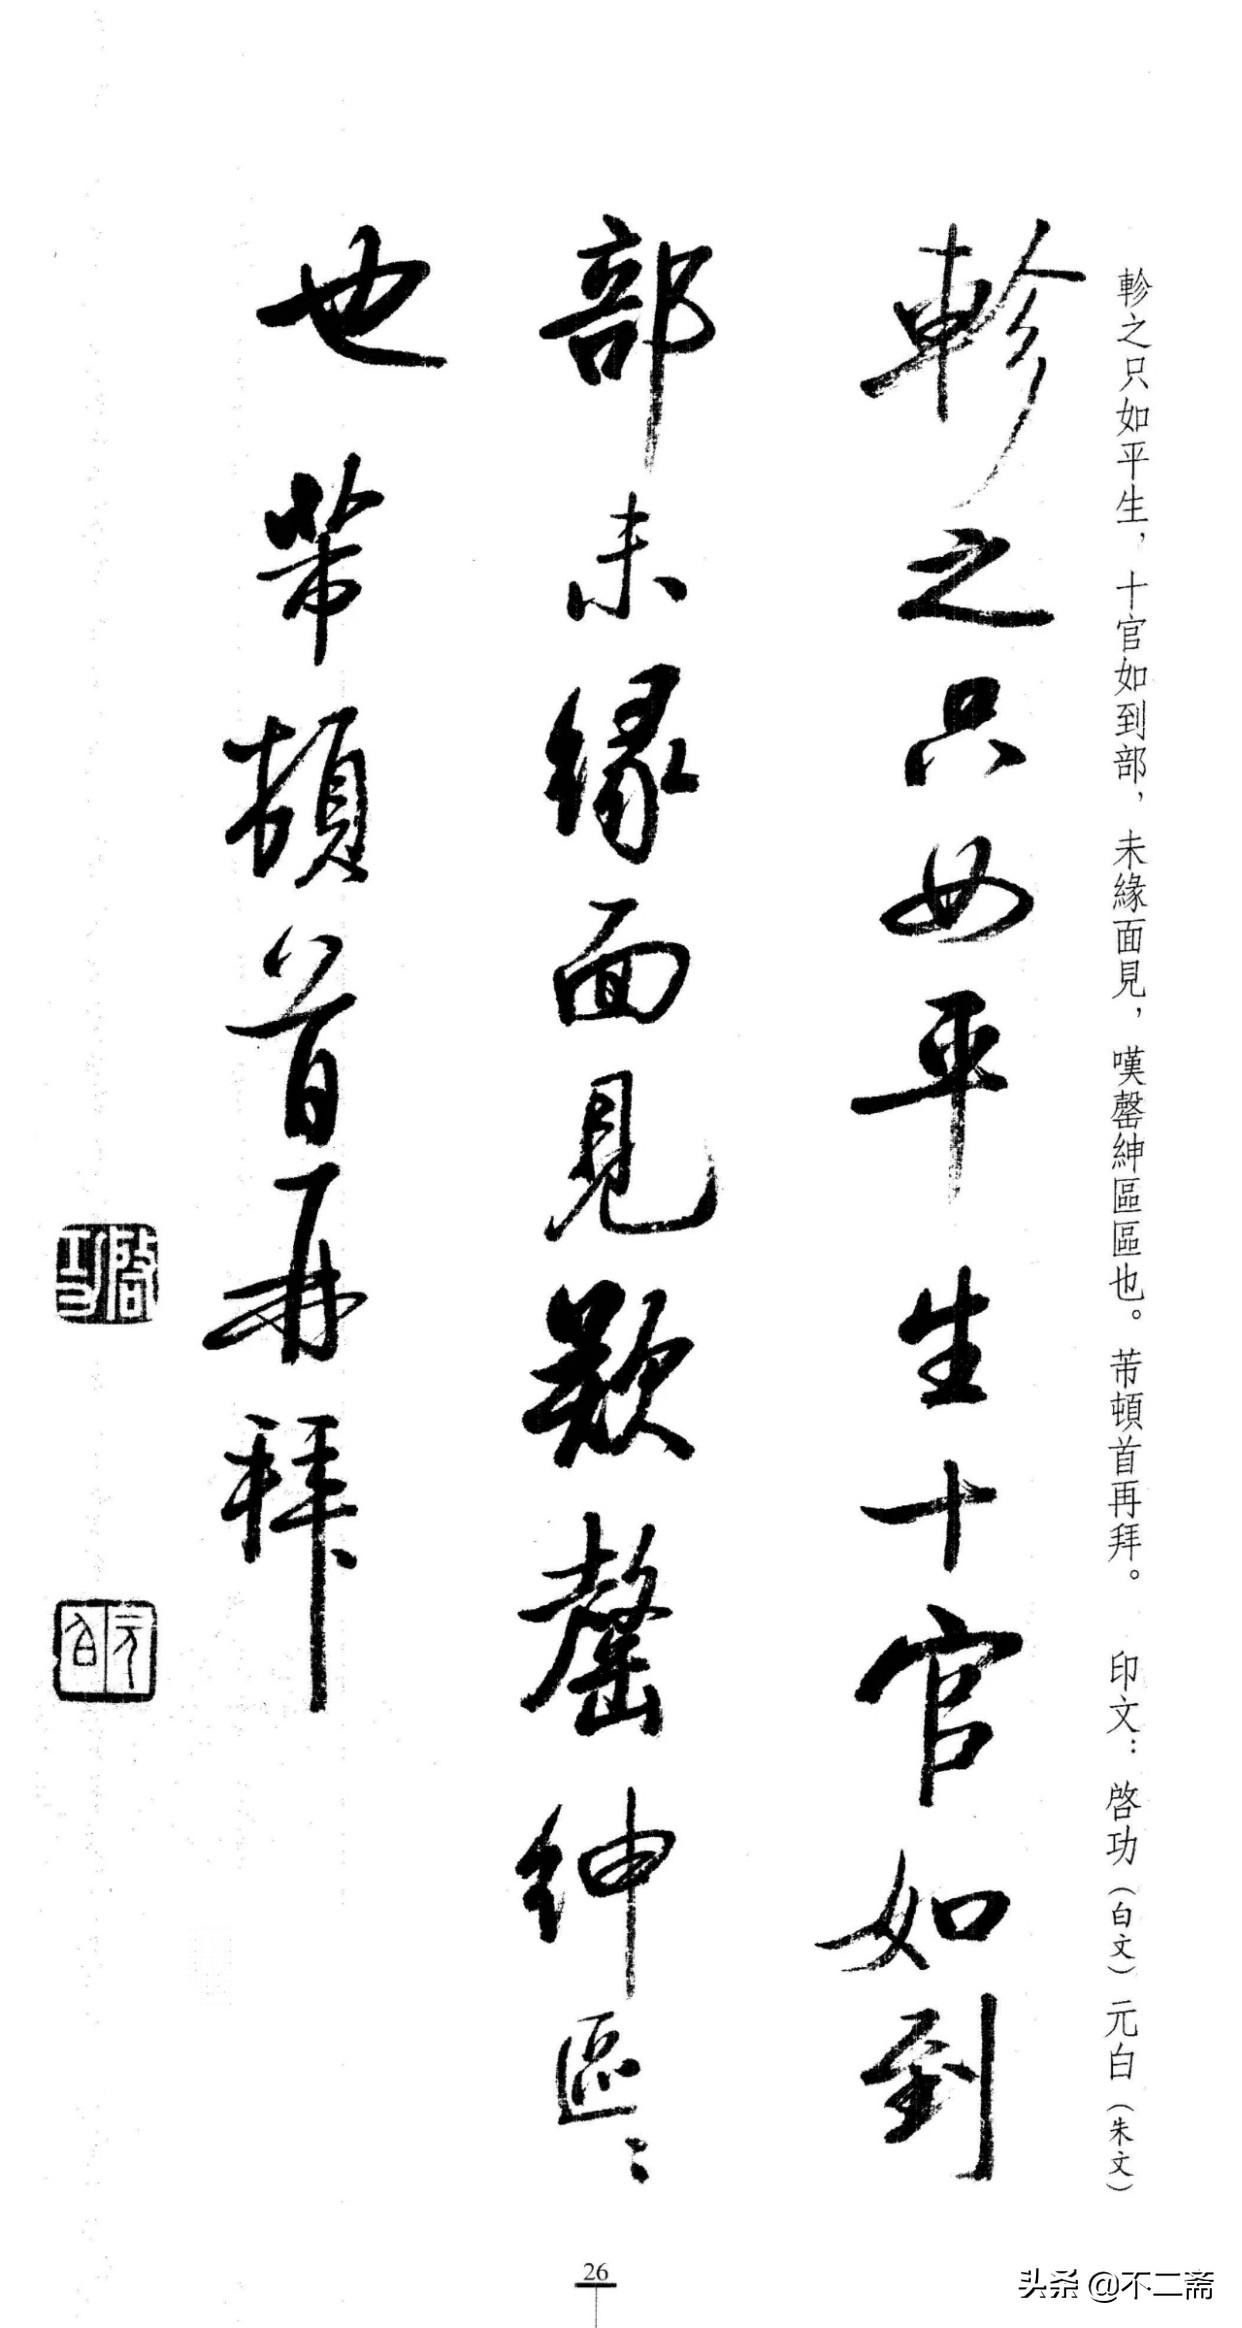 軫之只如平生，十官如到部，未緣面見，嘆罄紳區區也。芾頓首再拜。 印文：啓功（白文）元白（朱文）
軫之只如平生十官如到
部未緣面見歎罄紳區〻
也芾頓首再拜
啓功
元白
26
头条 @不二斋